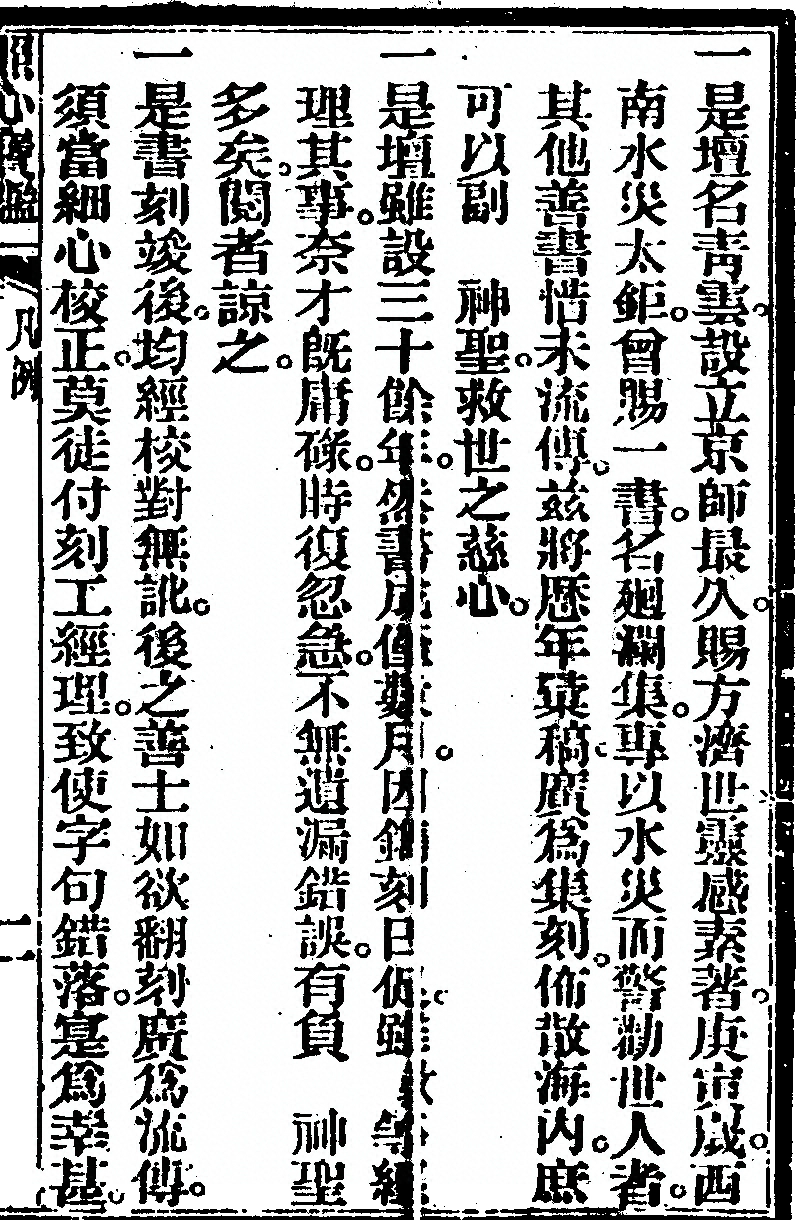 一是壇名青雲設立京師最久賜方濟世靈感素著庚寅歲西
南水災太鉅曾賜一書名廻瀾集專以水災而警勸世人者
其他善書惜未流傳茲將歷年彙稿廣爲集刻佈散海內庶
可以副　神聖救世之慈心
一是壇雖設三十餘年然書成僅數月因鐫刻日促雖　經
理其事奈才既庸碌時復忽急不無遺漏錯誤有負　神聖
多矣閱者諒之
一是書刻竣後均經校對無訛後之善士如欲翻刻廣爲流傳
須當細心校正莫徒付刻工經理致使字句錯落寔爲幸甚
凡例
二